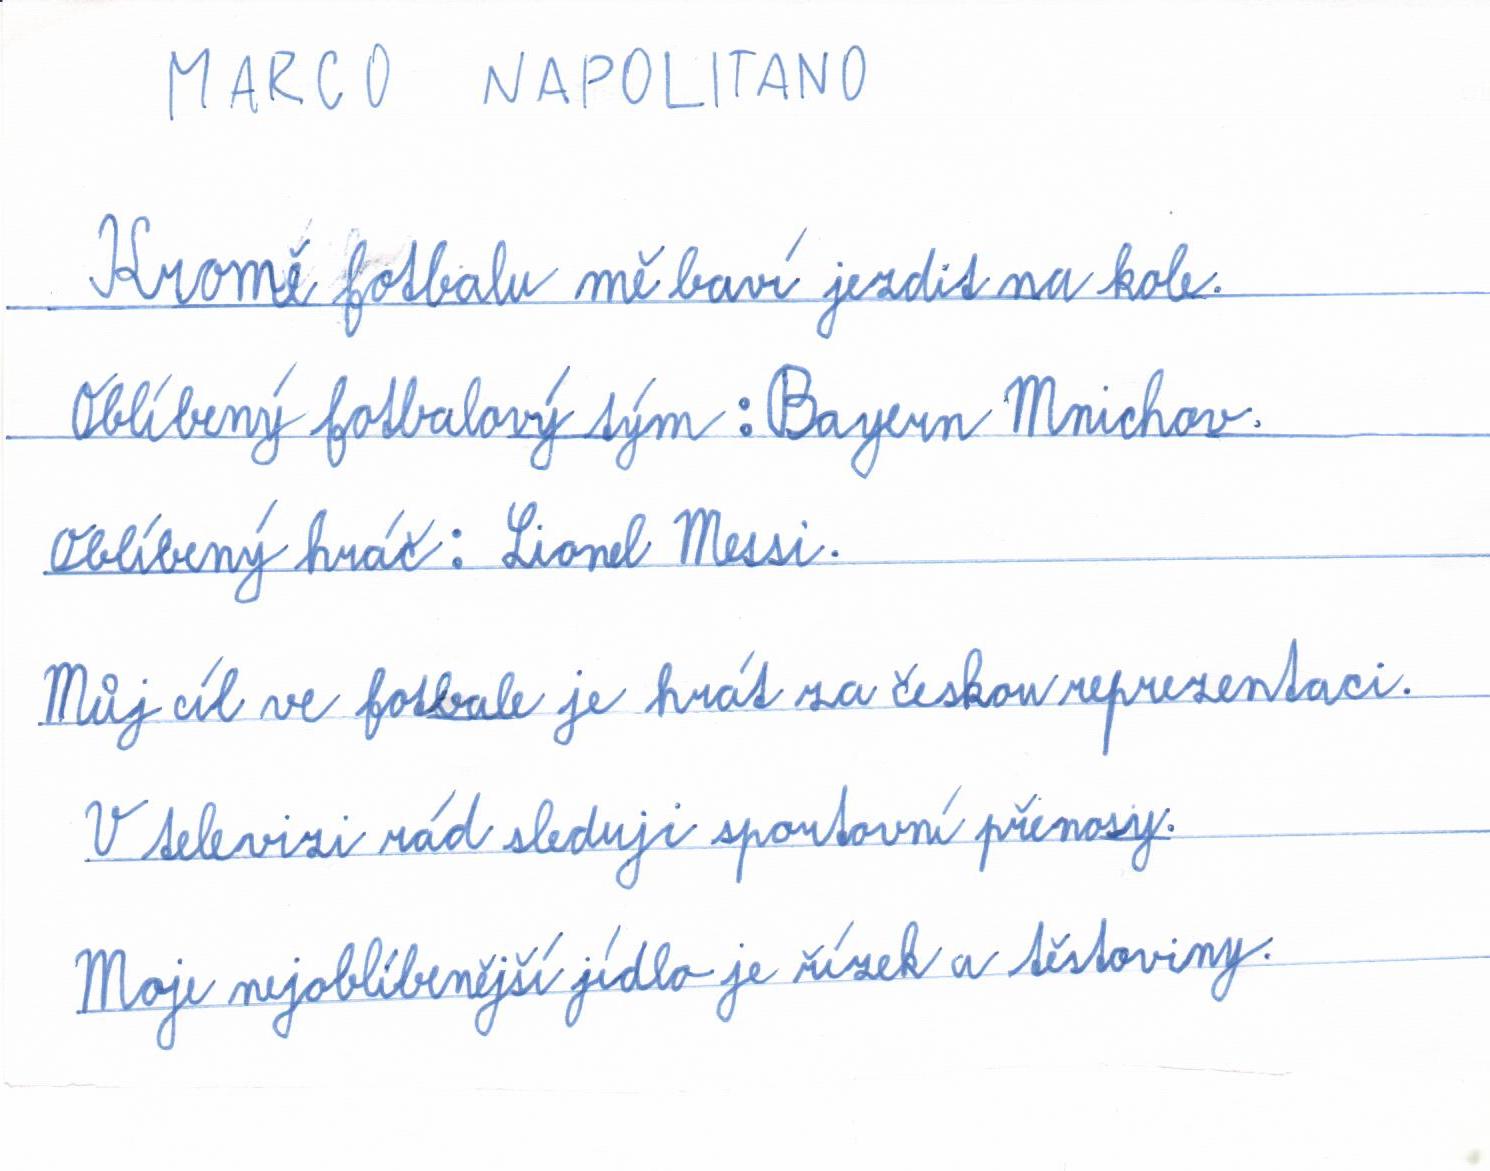 MARCO NAPOLITANO
Kromě fotbalu mě baví jezdit na kole.
Oblíbený fotbalový tým : Bayern Mnichov.
Oblíbený hráč : Lionel Messi.
Můj cíl ve fotbale je hrát za českou reprezentaci.
V televizi rád sleduji sportovní přenosy.
Moje nejoblíbenější jídlo je řízek a těstoviny.